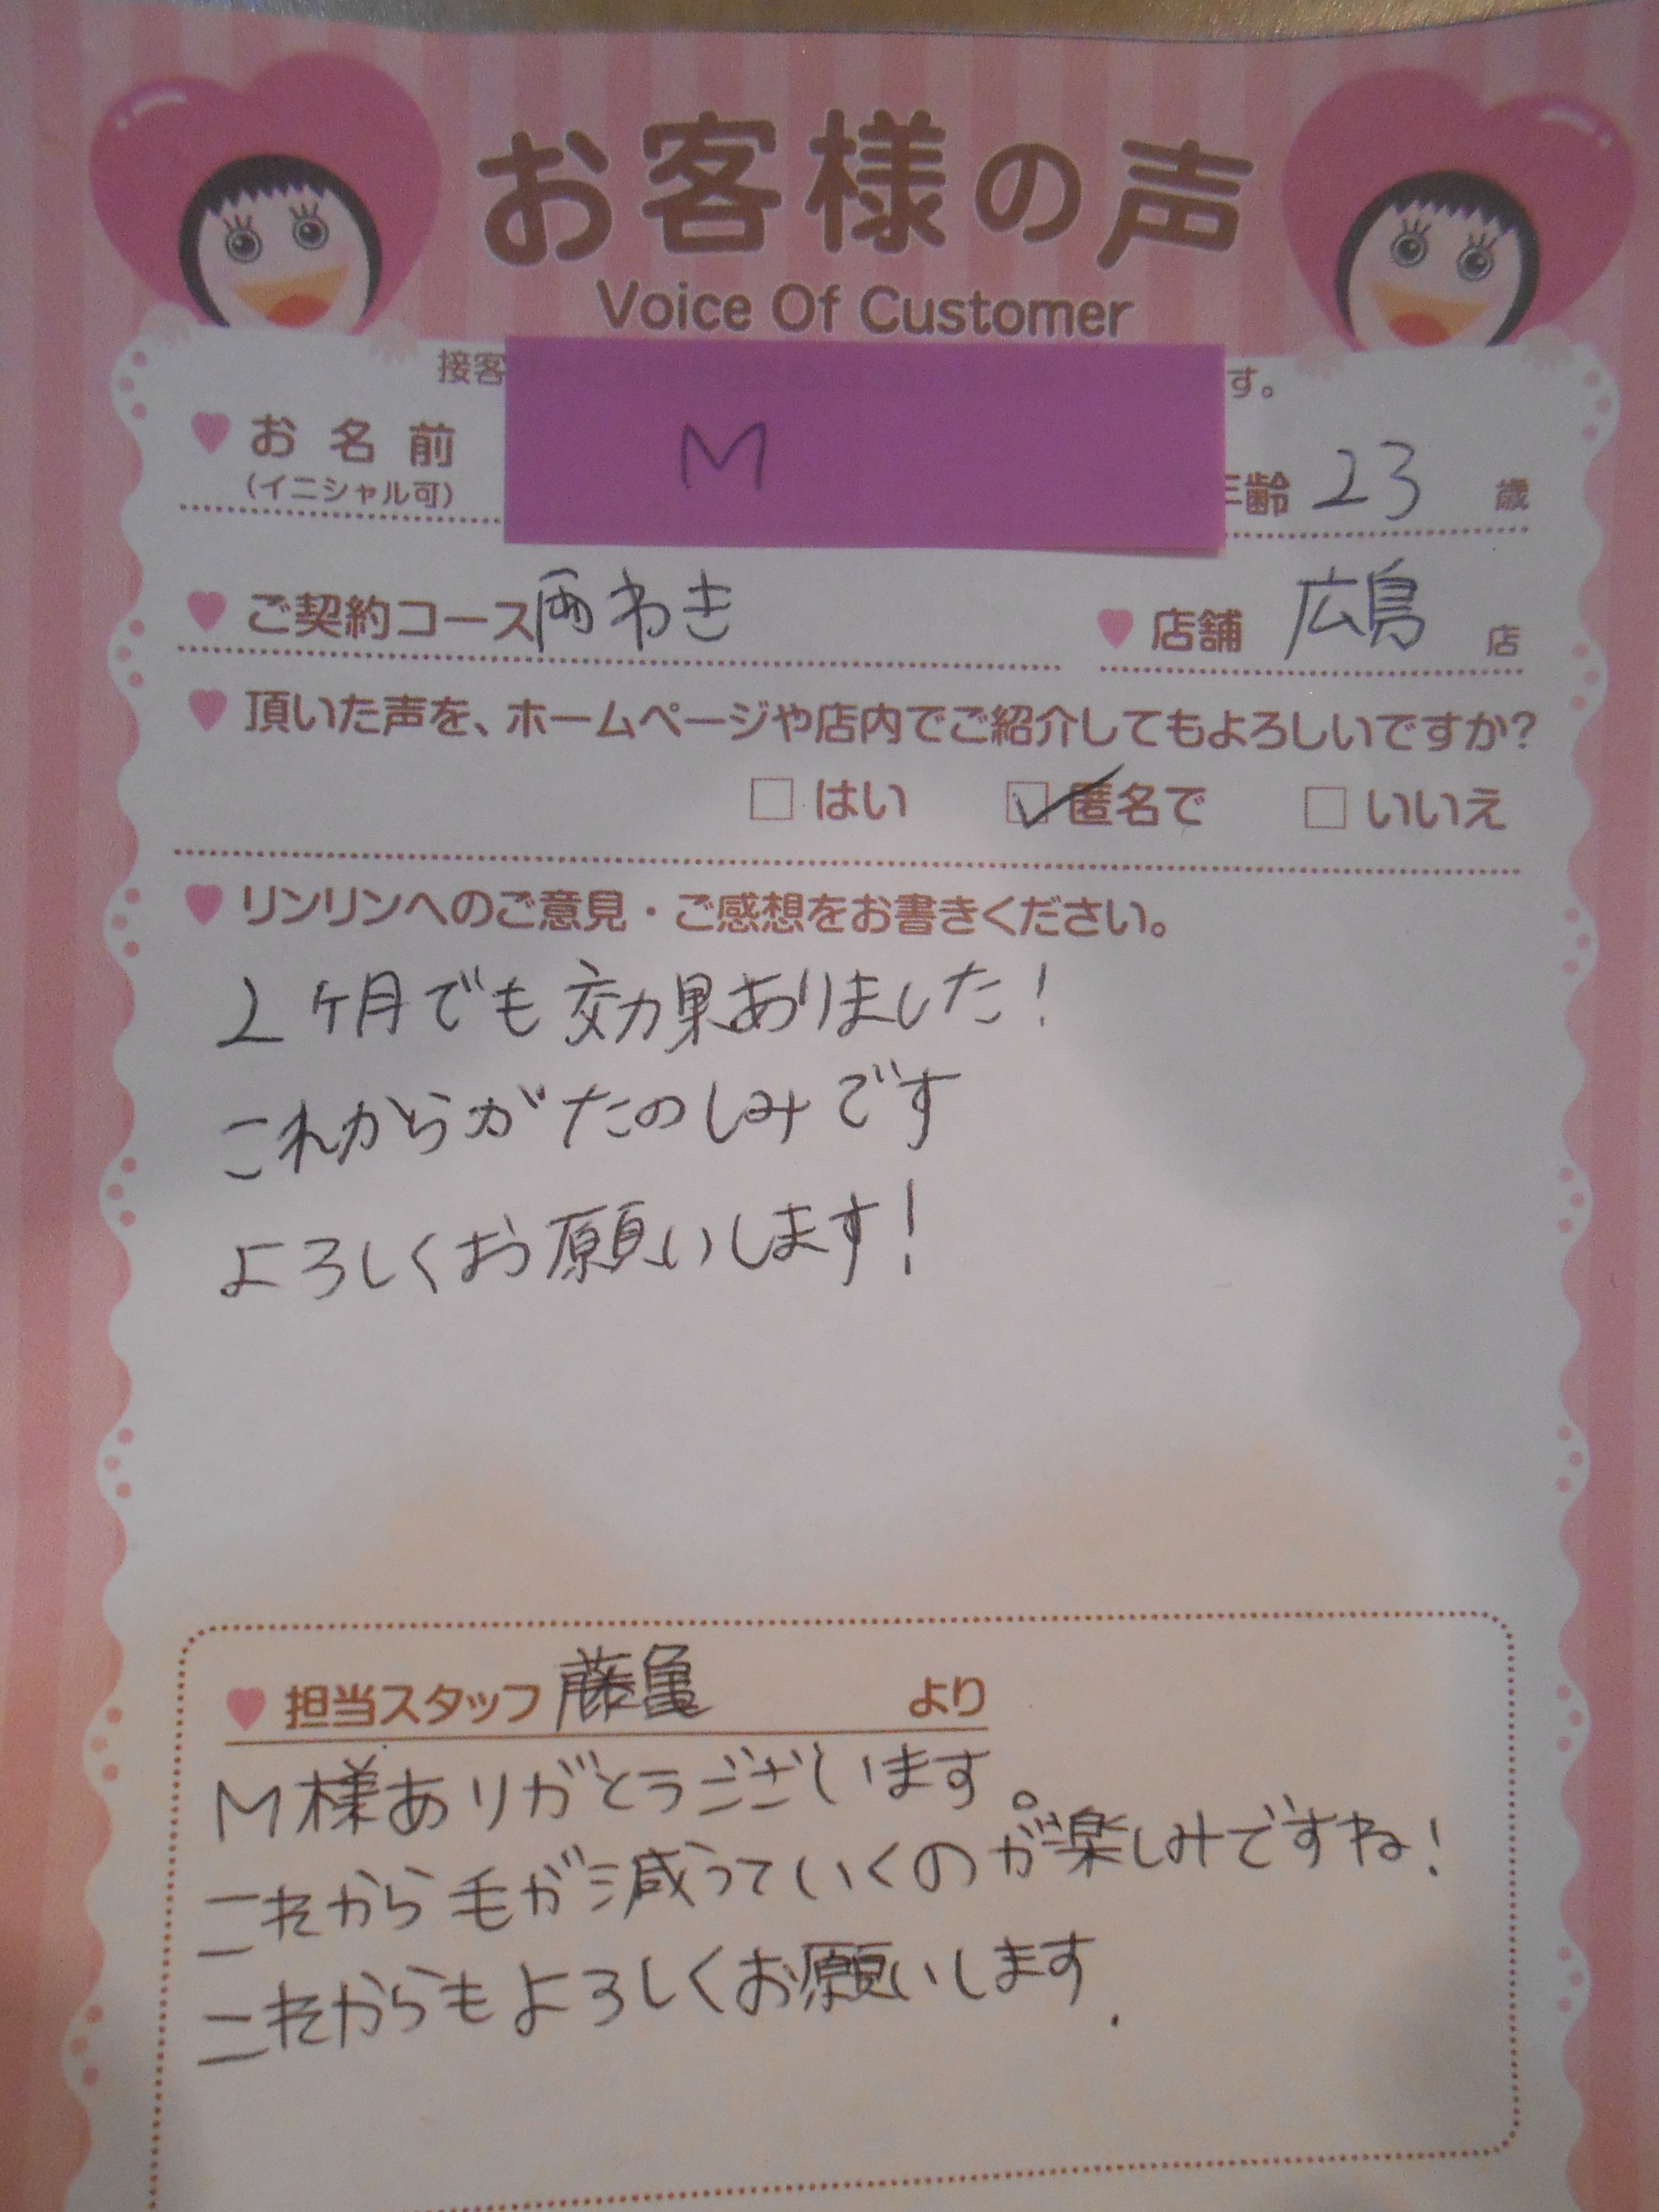 お客様の声
Voice Of Customer
接客 す。
お名前 M 年齢 23 歳
(イニシャル可)
ご契約コース 両わき 店舗 広島 店
頂いた声を、ホームページや店内でご紹介してもよろしいですか?
はい 匿名で いいえ
リンリンへのご意見・ご感想をお書きください。
2ヶ月でも効果ありました!
これからがたのしみです
よろしくお願いします!
担当スタッフ 藤亀 より
M様ありがとうございます。
これから毛が減っていくのが楽しみですね!
これからもよろしくお願いします.